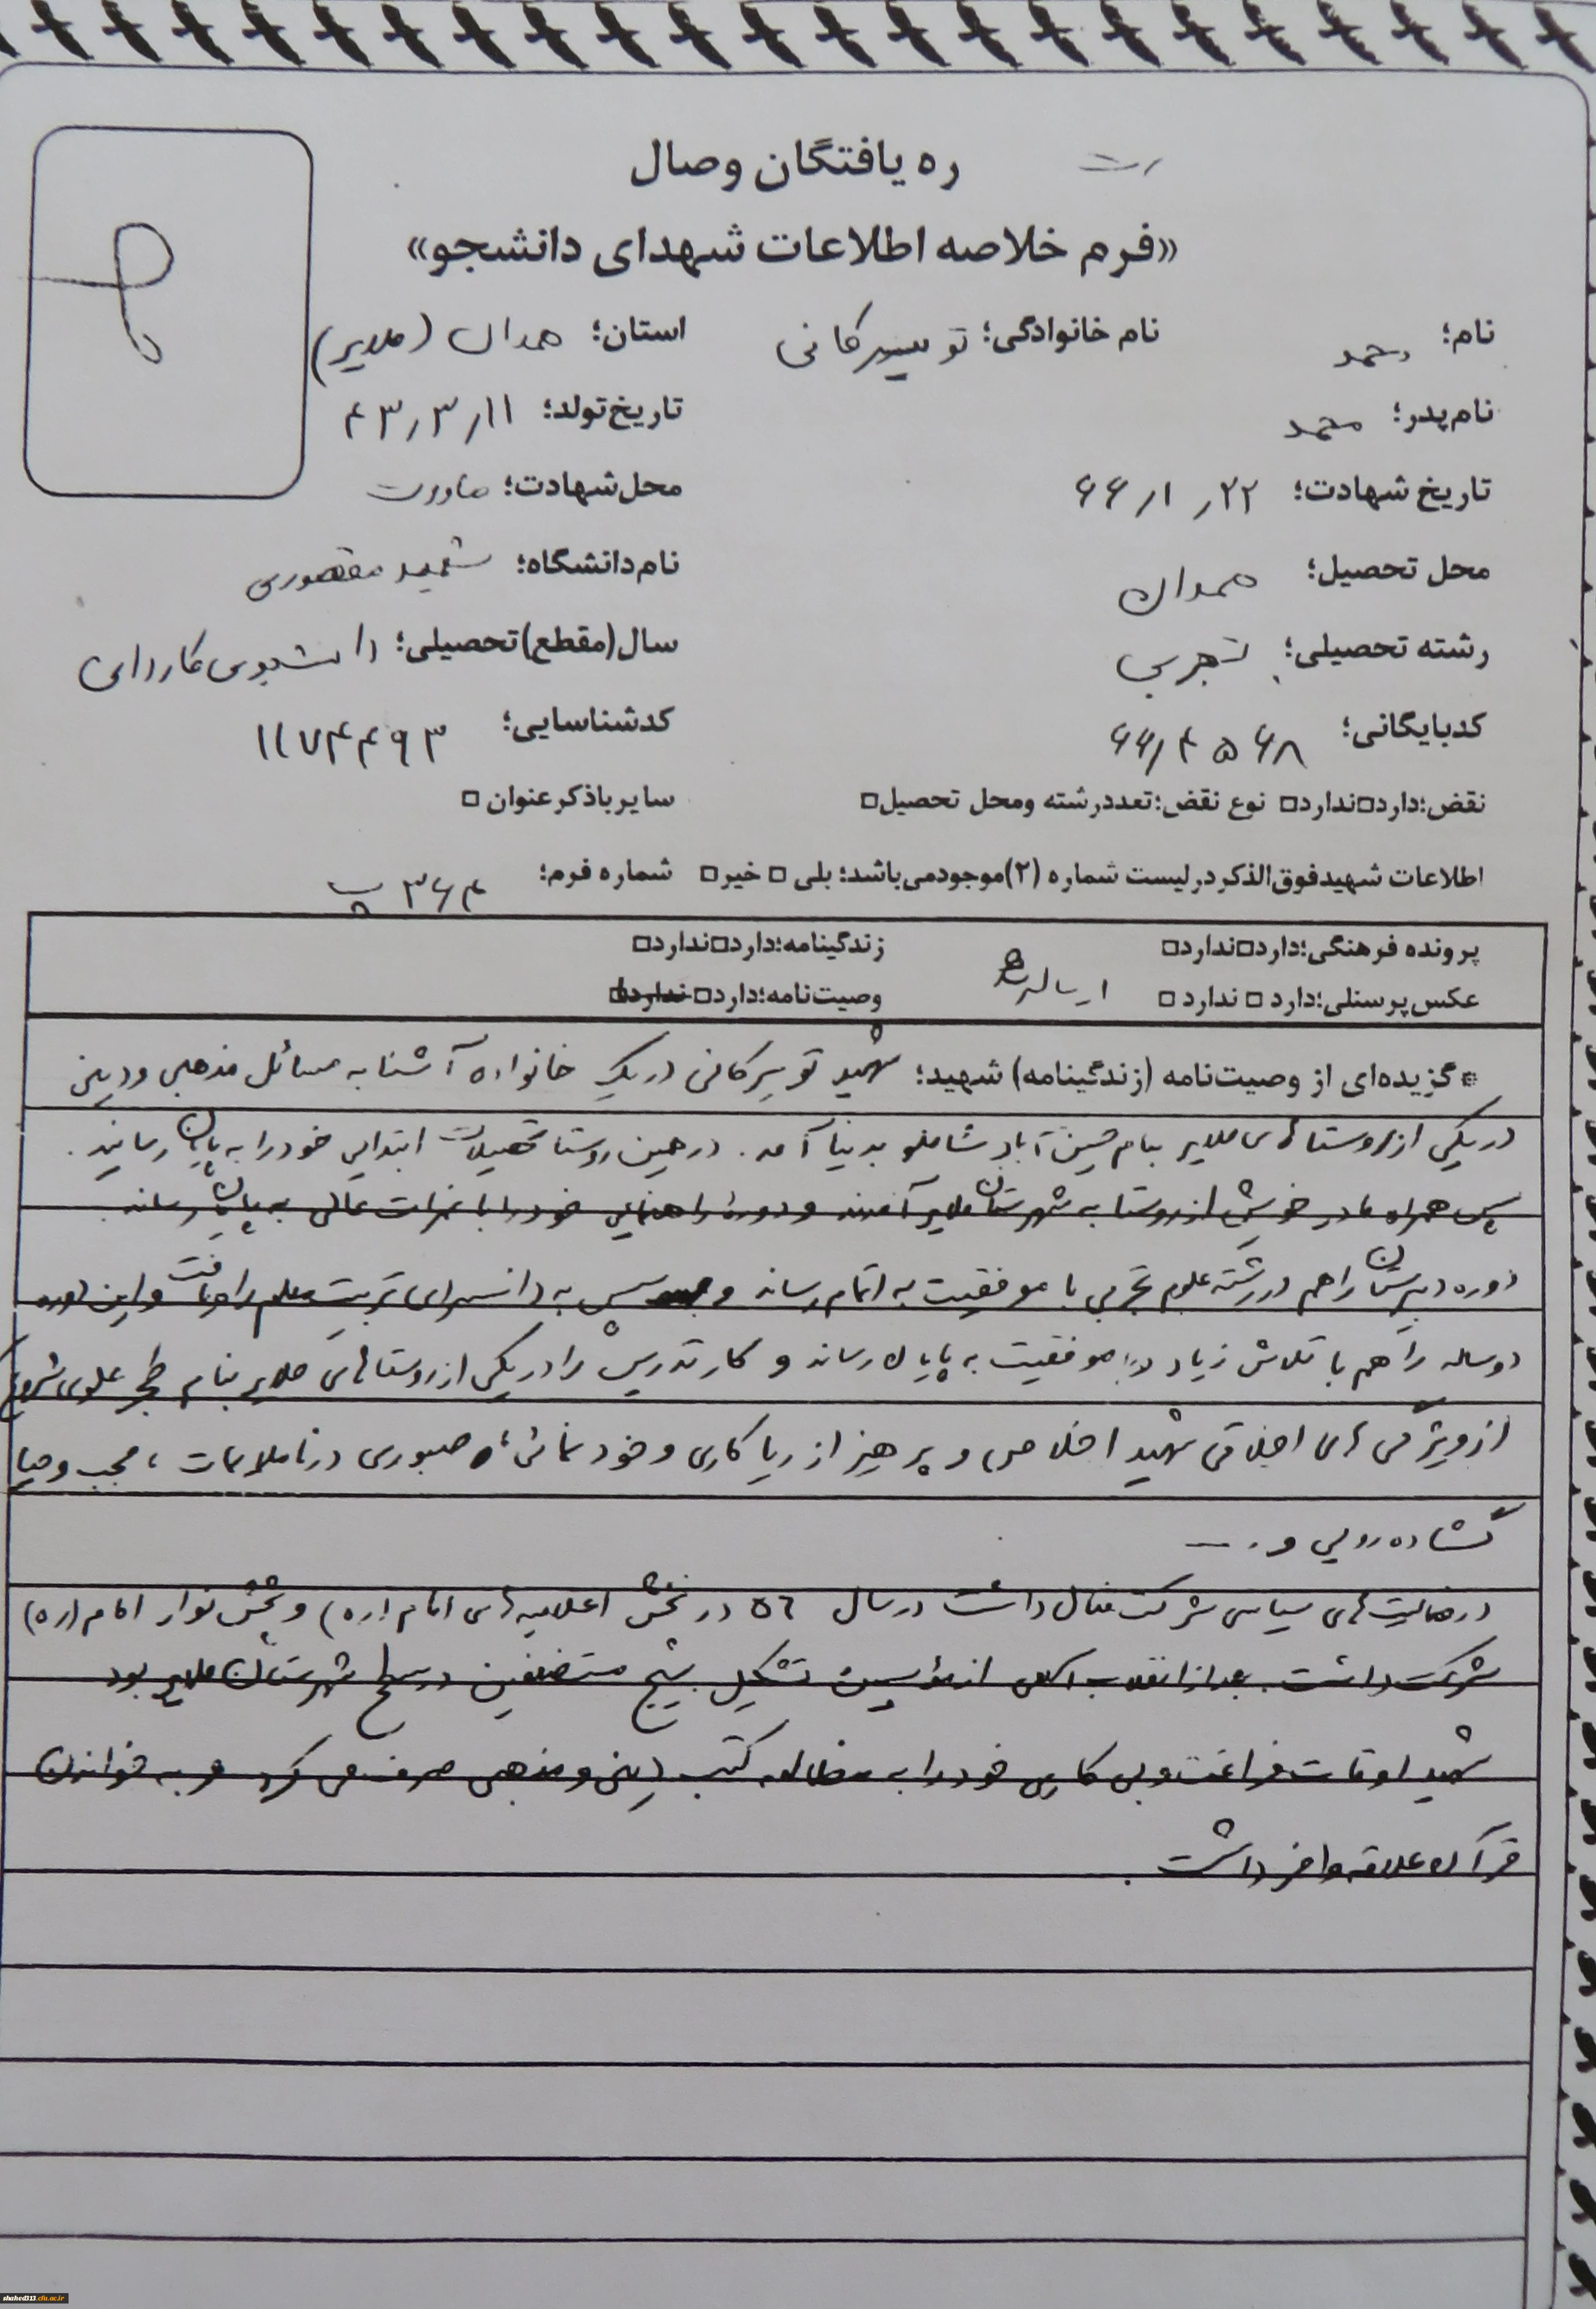 ره یافتگان وصال
«فرم خلاصه اطلاعات شهدای دانشجو»
نام؛ نام خانوادگی؛ تویسرکانی استان؛ همدان (ملایر)
نام پدر؛ محمد تاریخ تولد؛ ۴۳٫۳٫۱۱
تاریخ شهادت؛ ۶۶٫۱٫۲۲ محل شهادت؛ ماووت
محل تحصیل؛ همدان نام دانشگاه؛ شهید مقصودی
رشته تحصیلی؛ تجربی سال(مقطع)تحصیلی؛ دانشجوی کاردانی
کدبایگانی؛ ۶۶٫۴۵۶۸ کدشناسایی؛ ۱۱۷۴۴۹۳
نقض؛دارد□ندارد□ نوع نقض؛تعدد رشته ومحل تحصیل□ سایر باذکر عنوان □
اطلاعات شهید فوق الذکر در لیست شماره (۲)موجود می باشد؛ بلی □ خیر□ شماره فرم؛ ۳۶۴ پ
پرونده فرهنگی؛دارد□ندارد□ زندگینامه؛دارد□ندارد□
عکس پرسنلی؛دارد □ ندارد □ ارسال شد وصیت نامه؛دارد□ ندارد□
* گزیده ای از وصیت نامه (زندگینامه) شهید؛ شهید تویسرکانی در یک خانواده آشنا به مسائل مذهبی و دینی
در یکی از روستاهای ملایر بنام حسین آباد شاملو بدنیا آمد. در همین روستا تحصیلات ابتدایی خود را به پایان رسانید.
سپس همراه مادر خویش از روستا به شهرستان ملایر آمدند و دورهٔ راهنمایی خود را با نمرات عالی به پایان رساند.
دوره دبیرستان را هم در رشته علوم تجربی با موفقیت به اتمام رساند و سپس به دانسرای تربیت معلم راه یافت و این دوره
دو ساله را هم با تلاش زیاد با موفقیت به پایان رساند و کار تدریس را در یکی از روستاهای ملایر بنام علوی شروع
از ویژگی های اخلاقی شهید اخلاص و پرهیز از ریا کاری و خود نمائی، صبوری در ناملایمات، حجب و حیا
گشاده رویی و . —
در فعالیت های سیاسی شرکت فعال داشت در سال ۵۶ در پخش اعلامیه های امام (ره) و پخش نوار امام (ره)
شرکت داشت. بعد از انقلاب اسلامی از مؤسسین تشکیل بسیج مستضعفین در سطح شهرستان ملایر بود
شهید اوقات فراغت و بی کاری خود را به مطالعه کتب دینی و مذهبی صرف می کرد و به خواندن
قرآن علاقه وافر داشت.
shahed313.cfu.ac.ir